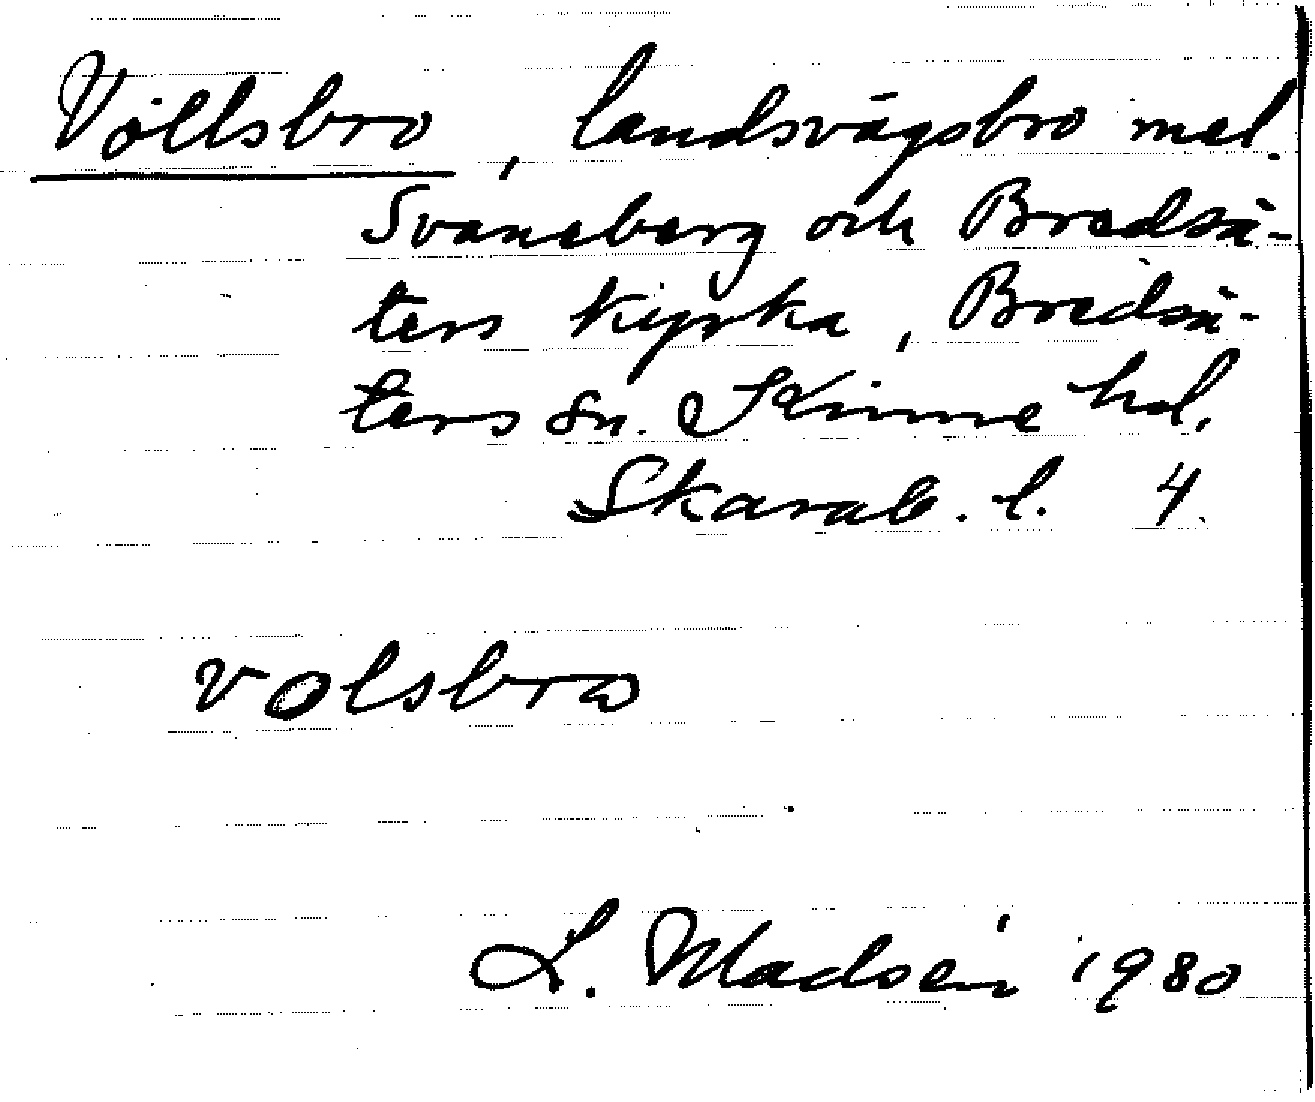 Völlsbro, landsvägsbro mel.
Svaneberg och Bredsä-
ters kyrka, Bredsä-
ters sn. Kinne hd.
Skarab. l. 4.
volsbro
L. Madsén 1980